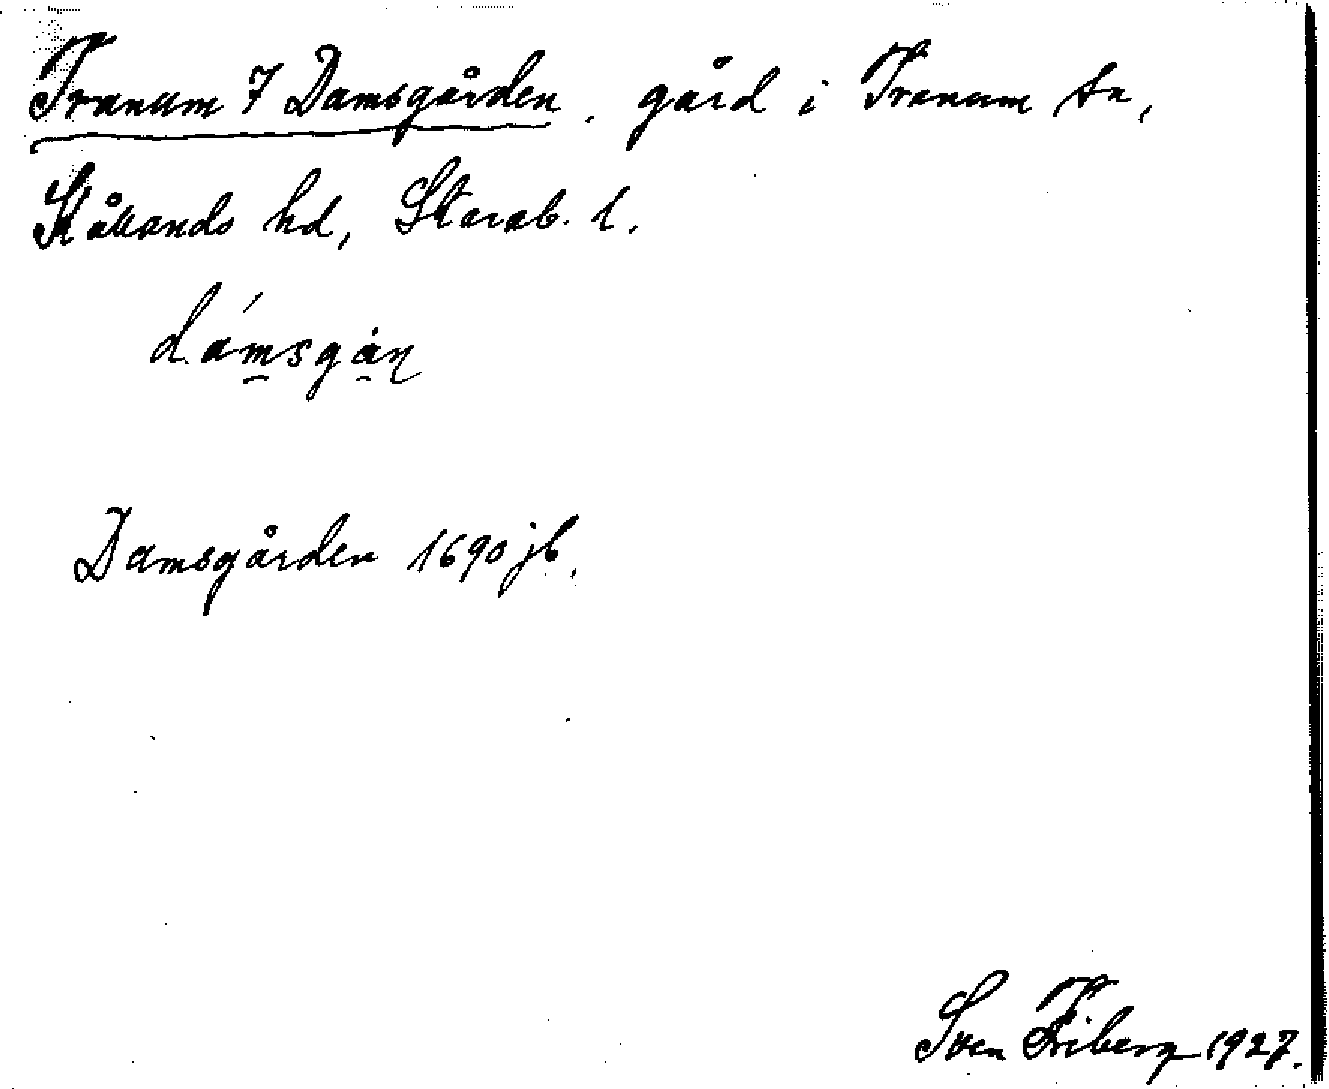 Tranum 7 Damsgården, gård i Tranum sn,
Kållands hd, Skarab. l.
dámsgån
Damsgården 1690 jb.
Sven Friberg 1927.